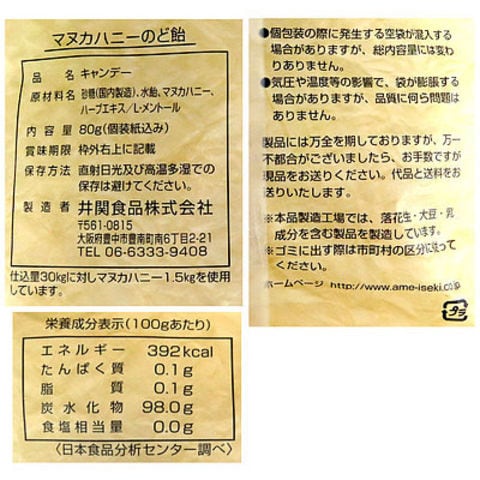 マヌカハニーのど飴
品名 キャンデー
原材料名 砂糖(国内製造)、水飴、マヌカハニー、
ハーブエキス/L-メントール
内容量 80g(個装紙込み)
賞味期限 枠外右上に記載
保存方法 直射日光及び高温多湿での
保存は避けてください。
製造者 井関食品株式会社
〒561-0815
大阪府豊中市豊南町南6丁目2-21
TEL 06-6333-9408
仕込量30kgに対しマヌカハニー1.5kgを使用
しています。
●個包装の際に発生する空袋が混入する
場合がありますが、総内容量には変わ
りありません。
●気圧や温度等の影響で、袋が膨張する
場合がありますが、品質に何ら問題は
ありません。
製品には万全を期しておりますが、万一
不都合がございましたら、お手数ですが
現品をお送りください。代品と送料をお
送りいたします。
※本品製造工場では、落花生・大豆・乳
成分を含む製品を製造しています。
※ゴミに出す際は市町村の区分に従って
ください。
ホームページ http://www.ame-iseki.co.jp
栄養成分表示(100gあたり)
エネルギー 392kcal
たんぱく質 0.1g
脂質 0.1g
炭水化物 98.0g
食塩相当量 0.0g
〈日本食品分析センター調べ〉